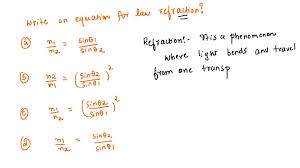 Write an equation for law refraction?
ⓐ n1/n2 = sinθ1/sinθ2
ⓑ n2/n1 = (sinθ2/sinθ1)²
ⓒ n1/n2 = (sinθ2/sinθ1)²
ⓓ n1/n2 = sinθ2/sinθ1
Refraction:- It is a phenomenon
where light bends and travel
from one transp